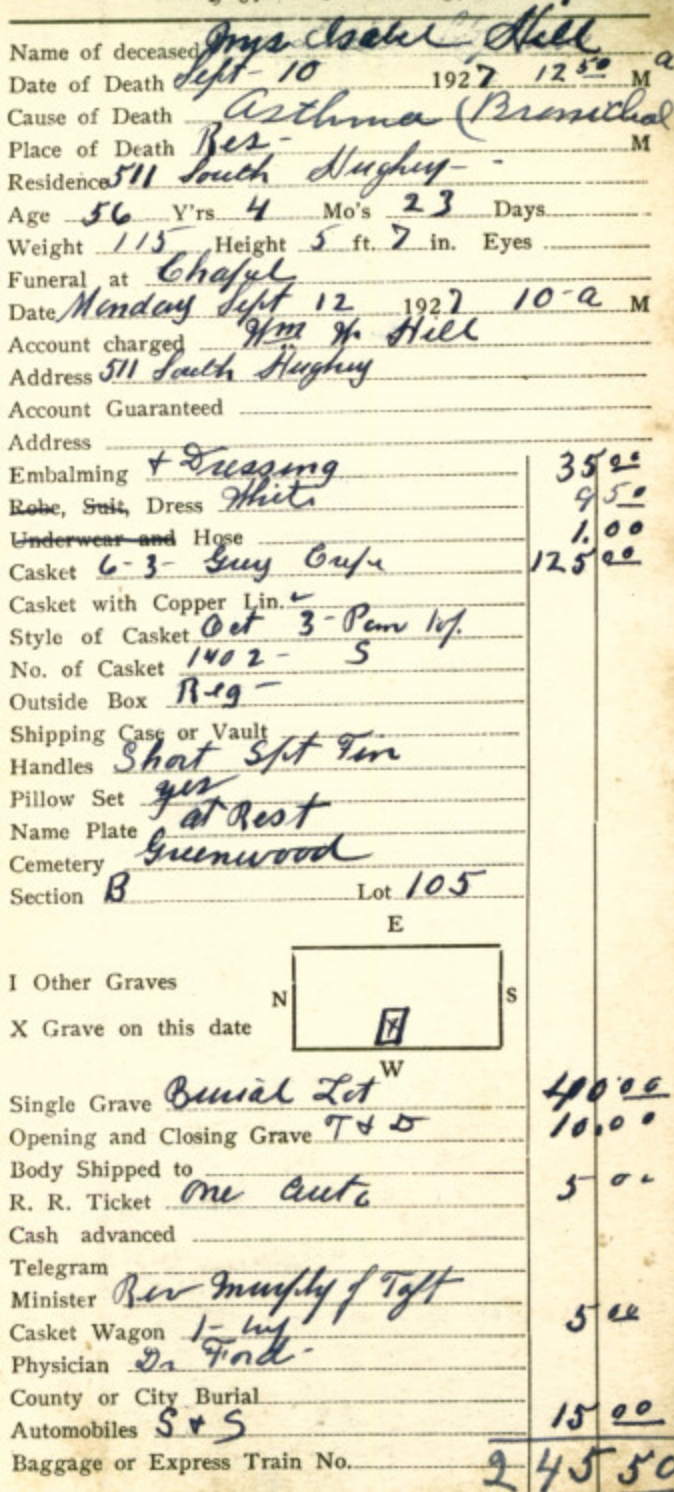 Name of deceased Mrs Isabel Hill
Date of Death Sept - 10 1927 12 50 M a
Cause of Death Asthma (Bronichal
Place of Death Res - M
Residence 511 South Hughey - -
Age 56 Y'rs 4 Mo's 23 Days
Weight 115 Height 5 ft. 7 in. Eyes
Funeral at Chapel
Date Monday Sept 12 1927 10-a M
Account charged Wm H. Hill
Address 511 South Hughey
Account Guaranteed
Address
Embalming + Dressing 35 00
Robe, Suit, Dress White 9 50
Underwear and Hose 1.00
Casket 6-3- Grey Crepe 125 00
Casket with Copper Lin.
Style of Casket Oct 3-Pan
No. of Casket 1402 - S
Outside Box Reg -
Shipping Case or Vault
Handles Short Tin
Pillow Set yes
Name Plate at Rest
Cemetery Greenwood
Section B Lot 105
E
I Other Graves
N S
X Grave on this date X
W
Single Grave Burial Lot 40 00
Opening and Closing Grave T & D 10.00
Body Shipped to
R. R. Ticket One Auto 5 00
Cash advanced
Telegram
Minister Rev Murphy of Taft
Casket Wagon 1- 5 00
Physician Dr Ford -
County or City Burial
Automobiles S + S 15 00
Baggage or Express Train No. 245 50